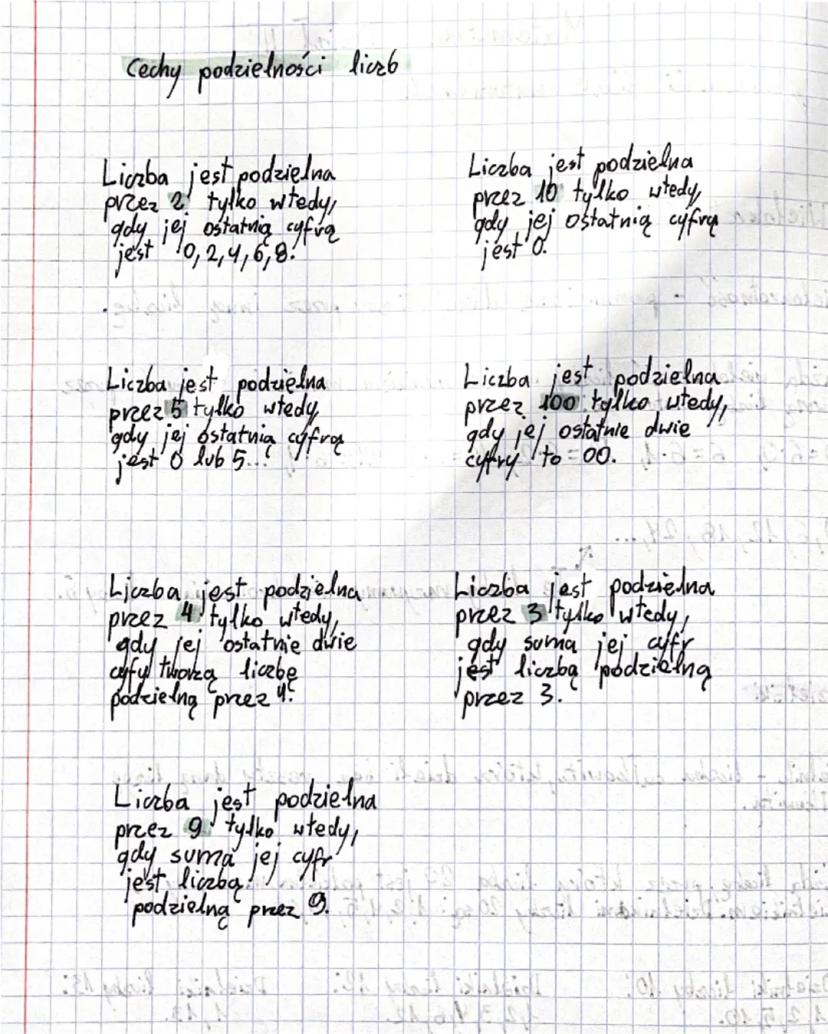 Cechy podzielności liczb
Liczba jest podzielna
przez 2 tylko wtedy,
gdy jej ostatnią cyfrą
jest 0, 2, 4, 6, 8.
Liczba jest podzielna
przez 10 tylko wtedy,
gdy jej ostatnią cyfrą
jest 0.
Liczba jest podzielna
przez 5 tylko wtedy
gdy jej ostatnią cyfrą
jest 0 lub 5.
Liczba jest podzielna
przez 100 tylko wtedy,
gdy jej ostatnie dwie
cyfry to = 00.
Liczba jest podzielna
przez 4 tylko wtedy,
gdy jej ostatnie dwie
cyfy tworzą liczbę
podzielną przez 4.
Liczba jest podzielna
przez 3 tylko wtedy,
gdy suma jej cyfr
jest liczbą podzielną
przez 3.
Liczba jest podzielna
przez 9 tylko wtedy,
gdy suma jej cyfr
jest liczbą
podzielną przez 9.